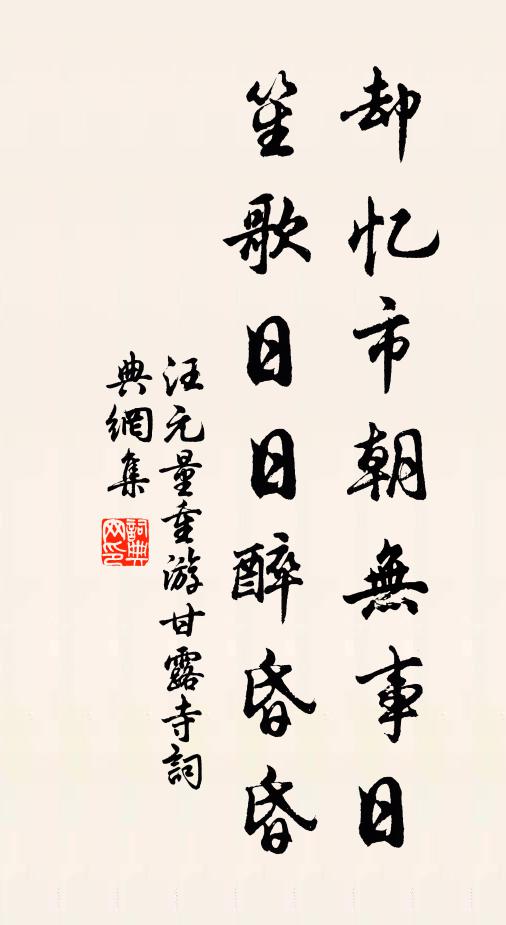 却忆市朝無事日
笙歌日日醉昏昏
汪元量重游甘露寺詞
典網集
詞典网印